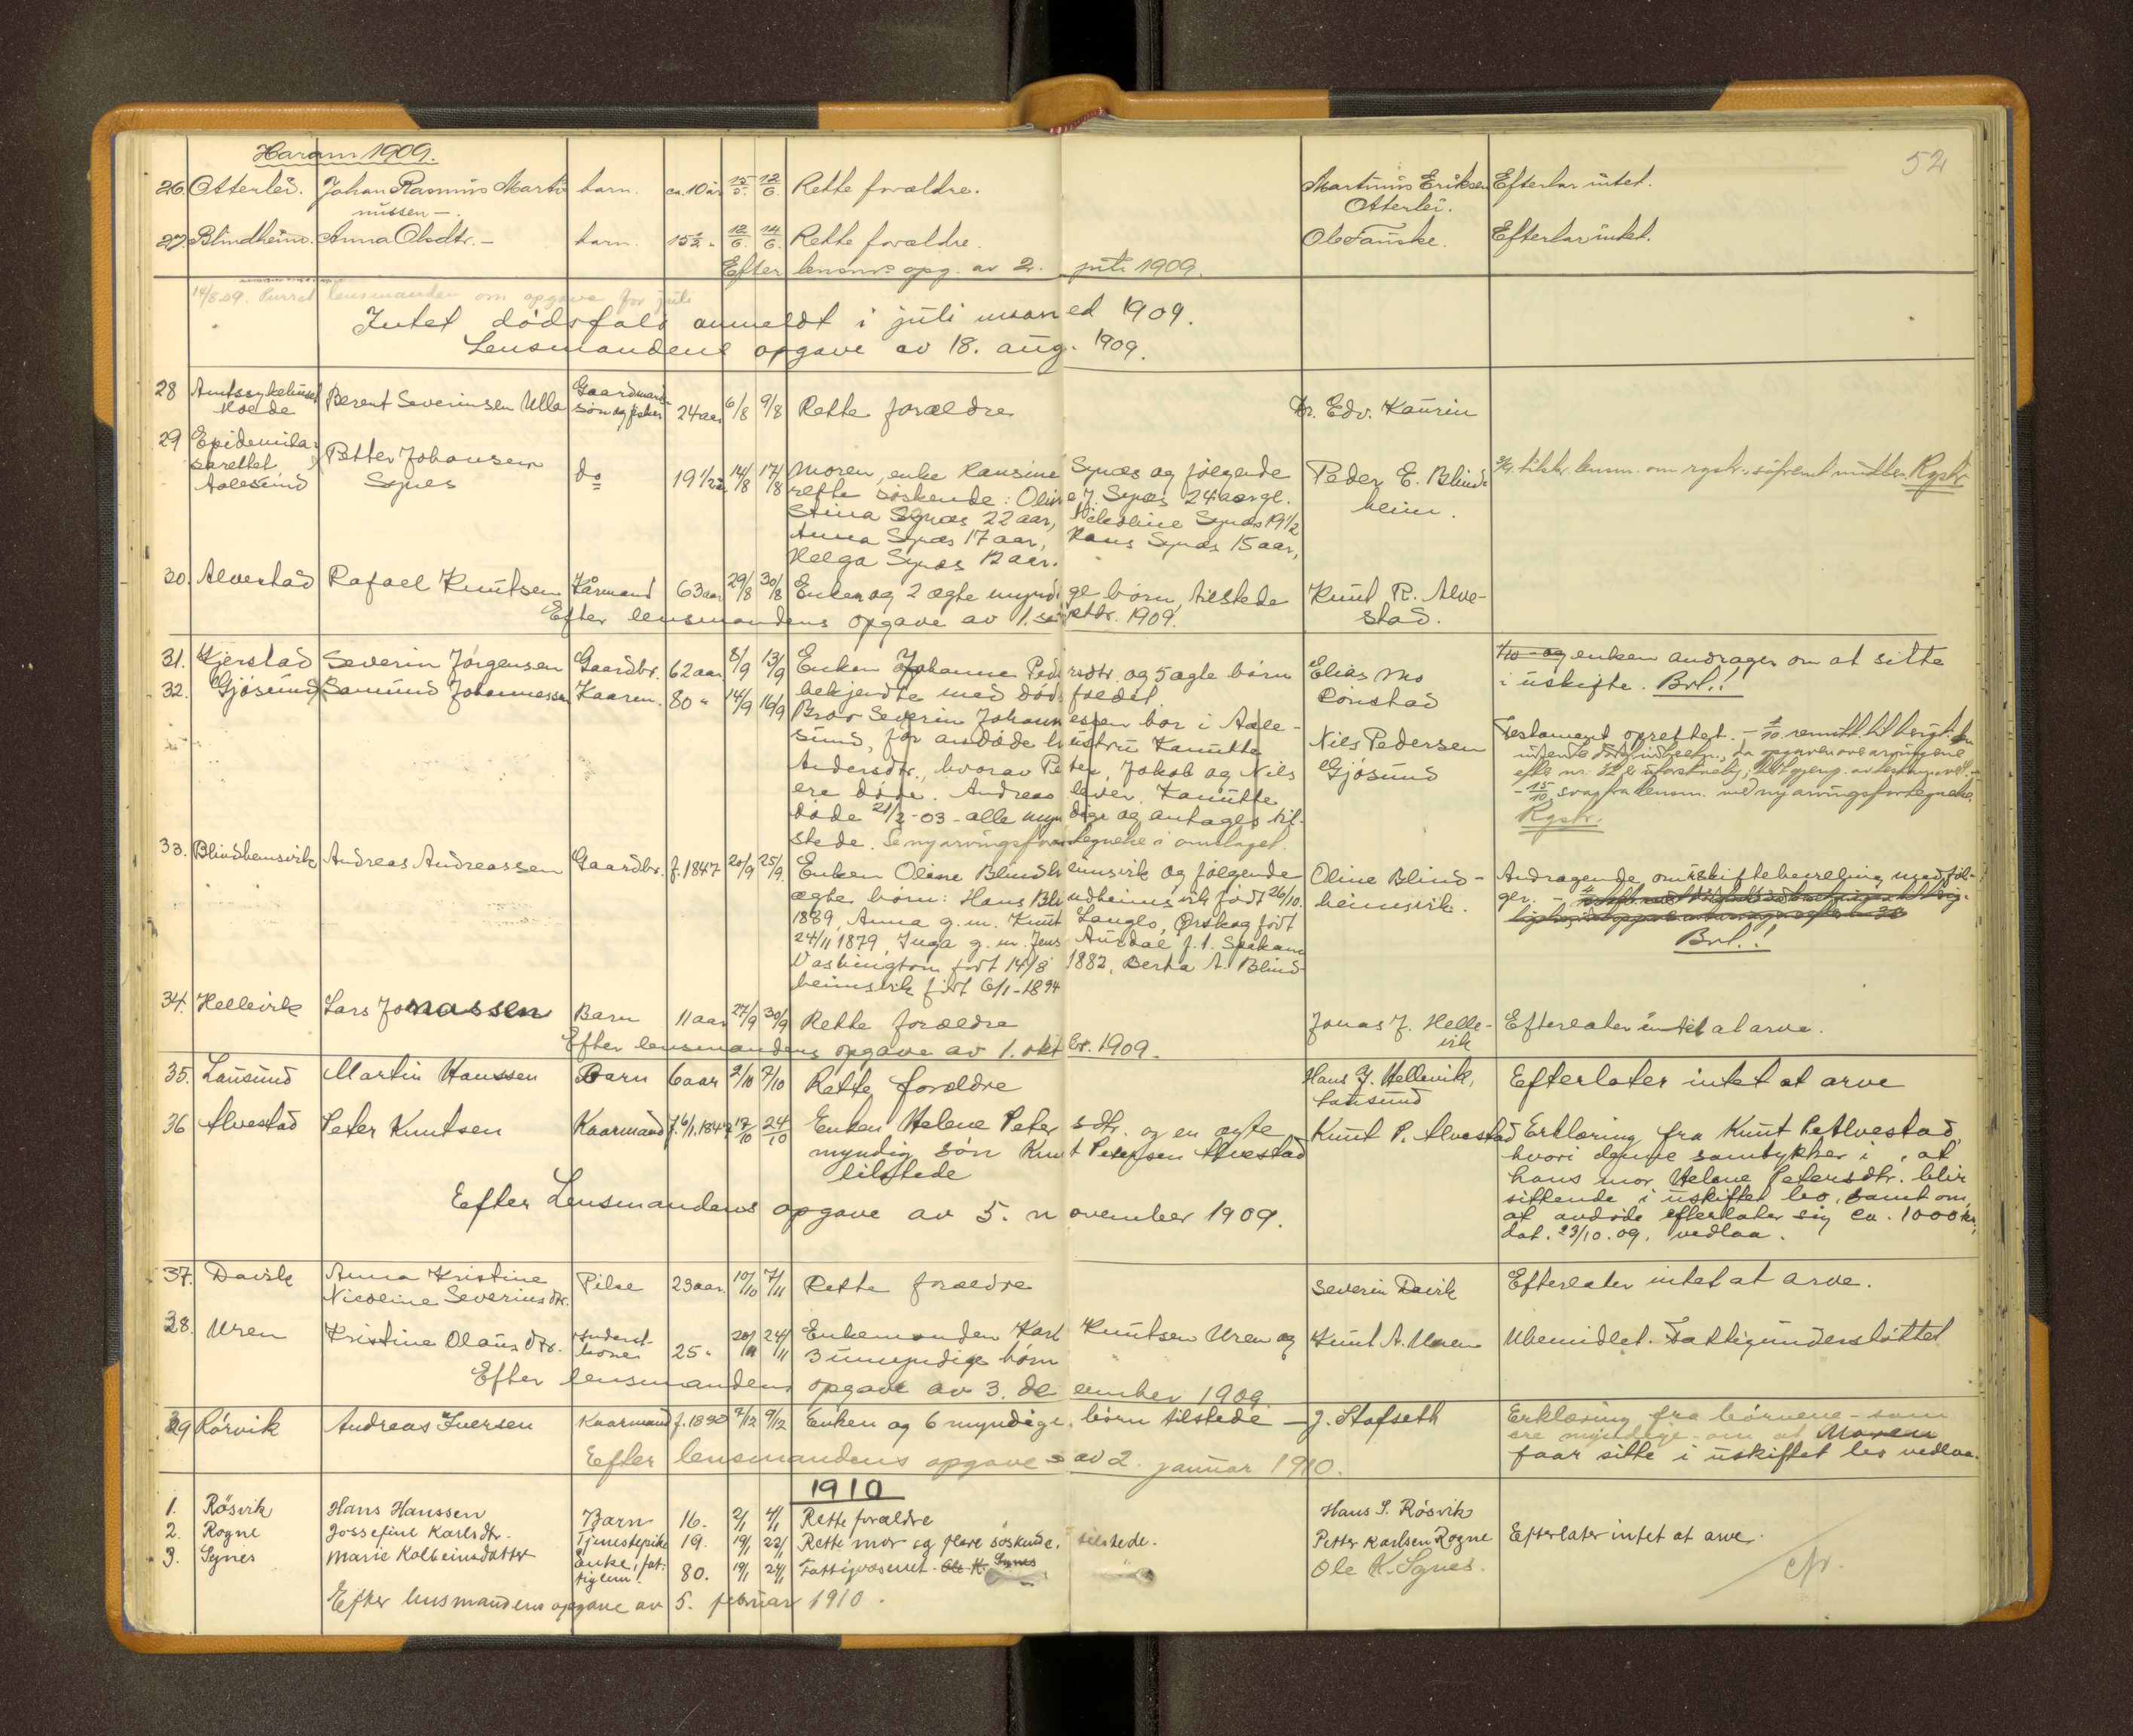 Haram 1909.
52
26 Otterlei. Johan Rasmus Marti barn. ca. 10 år 15/5. 12/6. Rette forældre. Martinus Eriksen Efterlar intet.
nussen —. Otterlei.
27. Blindheim. Anna Olsdtr. — barn. 15½ " 12/6. 14/6. Rette forældre. Ole Fauske. Efterlar intet.
Efter lensm.s opg. av 2. juli 1909.
14/8 09. Purret lensmanden om opgave for juli
Intet dødsfald anmeldt i juli maaned 1909.
Lensmandens opgave av 18. aug. 1909.
28 Amtssykehuset Gaardmand
Molde Berent Severinsen Ulla søn og fisker 24 aar 6/8 9/8 Rette forældre Dr. Edv. Kaurin
29 Epidemila-
sarettet Petter Johansen do 19 1/2 14/8 17/8 Moren, enke Hansine Synes og følgende Peder E. Blind- tilskr. lensm. om rgstr., såfremt midler. Rgstr.
Aalesund Synes rette søskende: Oline J. Synes 24 aar gl. heim.
Stina Synæs 22 aar, Nikoline Synæs 19 1/2
Anna Synæs 17 aar, Hans Synæs 15 aar,
Helga Synæs 12 aar.
30. Alvestad Rafael Knutsen Kårmand 63 aar 29/8 30/8 Enken og 2 ægte myndige børn, tilstede Knut R. Alve-
Efter lensmandens opgave av 1. septbr. 1909. stad.
31. Kjerstad Severin Jørgensen Gaardbr. 62 aar 8/9 13/9 Enken Johanne Pedersdtr. og 5 ægte børn Elias Mo enken andrager om at sitte
bekjendte med dødsfaldet. Lønstad i uskifte. Bvl.!
32. Gjøsund Samund Johannessen Kaarm. 80 " 14/9 16/9 Bror Severin Johannessen bor i Aale- Nils Pedersen Testament oprettet. —
sund, før avdøde hustru Kanutte Gjøsund
Andersdtr., hvorav Peter, Jakob og Nils
ere døde. Andreas lever. Kanutte
døde 21/2 -03 - alle myndige og antages til- 15/10 svar fra lensm. med ny arvingsfortegnelse.
stede. Se ny arvingsfortegnelse i omslaget. Rgstr.
33. Blindheimsvik Andreas Andreassen Gaardbr. f. 1847 20/9 25/9. Enken Oline Blindheimsvik og følgende Oline Blind- Andragende om uskiftebevilling medføl-
ægte børn: Hans Blindheimsvik født 26/10. heimsvik. ger. —
1889, Anna g. m. Knut Langlo, Ørskog født
24/11 1879, Inga g. m. Jens Aurdal f. t. Spokane Bvl.!
Washington født 14/8 1882, Berta A. Blind-
heimsvik født 6/1 - 1894
34. Hellevik Lars Jonassen Barn 11 aar 27/9 30/9 Rette forældre Jonas J. Helle- Efterlater intet at arve.
Efter lensmandens opgave av 1. oktbr. 1909. vik
35. Lausund Martin Hanssen Barn 6 aar 2/10 7/10 Rette forældre Hans J. Hellevik, Efterlater intet at arve
Lausund
36 Alvestad Peter Knutsen Kaarmand f. 6/1. 1847 17/10 24/10 Enken Helene Petersdtr. og en ægte Knut P. Alvestad Erklæring fra Knut P. Alvestad,
myndig søn Knut Petersen Alvestad hvori denne samtykker i, at
tilstede hans mor Helene Petersdtr. blir
sittende i uskiftet bo, samt om,
Efter Lensmandens opgave av 5. november 1909. at avdøde efterlater sig ca. 1000 kr,
dat. 23/10. 09, vedlaa.
37. Davik Anna Kristine Pike 23 aar. 10/10 7/11 Rette forældre Severin Davik Efterlater intet at arve.
Nicoline Severinsdtr.
38. Uren Kristine Olausdtr. Inderst- 25 " 20/11 24/11 Enkemanden Karl Knutsen Uren og Knut A. Uren Ubemidlet. Fattigunderstøttet
kone 3 umyndige børn
Efter lensmandens opgave av 3. december 1909
39 Rørvik Andreas Iversen Kaarmand f. 1830 7/12 9/12 Enken og 6 myndige børn tilstede — J. Stafseth Erklæring fra børnene - som
ere myndige - om at Moren
Efter lensmandens opgave av 2. januar 1910. faar sitte i uskiftet bo vedlaa.
1910
1. Røsvik Hans Hanssen Barn 16. 2/1 4/1 Rette forældre Hans S. Røsvik
2. Rogne Jossefine Karlsdtr. Tjenestepike 19. 19/1 22/1 Rette mor og flere søskende. tilstede. Petter Karlsen Rogne Efterlater intet at arve.
3. Synes Marie Kolbeinsdatter Enke, fat- 80. 19/1 24/1 Fattigvæsenet. Ole K. Synes Ole K. Synes.
tiglem.
Efter lensmandens opgave av 5. februar 1910.